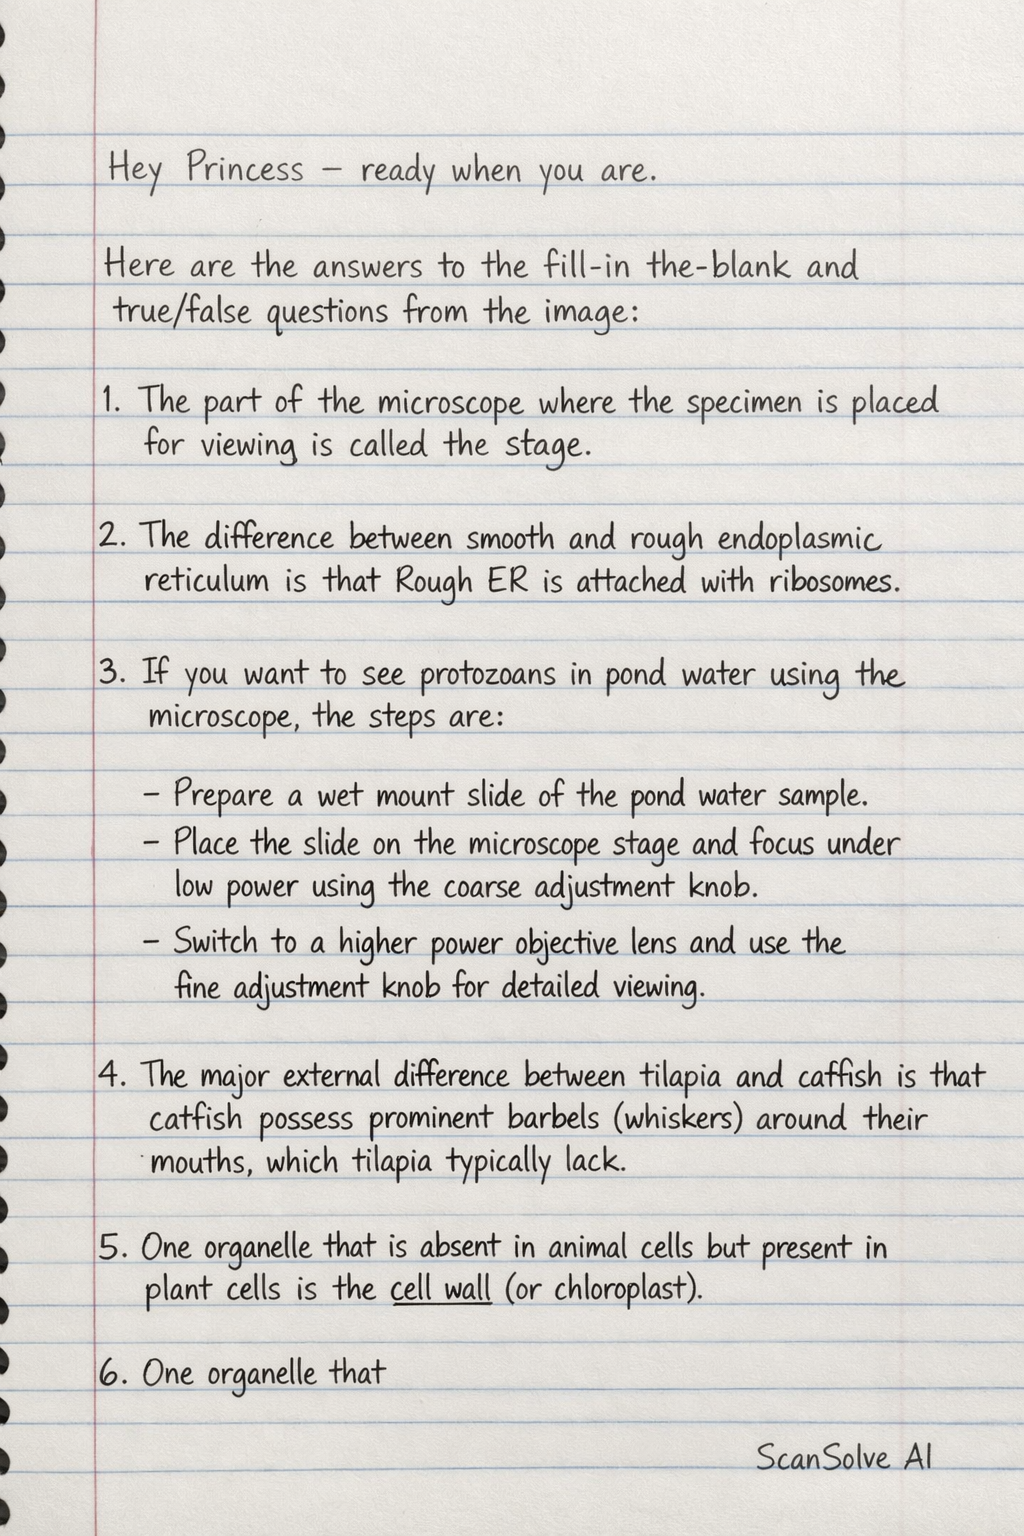 Hey Princess – ready when you are.
Here are the answers to the fill-in the-blank and
true/false questions from the image:
1. The part of the microscope where the specimen is placed
for viewing is called the stage.
2. The difference between smooth and rough endoplasmic
reticulum is that Rough ER is attached with ribosomes.
3. If you want to see protozoans in pond water using the
microscope, the steps are:
– Prepare a wet mount slide of the pond water sample.
– Place the slide on the microscope stage and focus under
low power using the coarse adjustment knob.
– Switch to a higher power objective lens and use the
fine adjustment knob for detailed viewing.
4. The major external difference between tilapia and catfish is that
catfish possess prominent barbels (whiskers) around their
mouths, which tilapia typically lack.
5. One organelle that is absent in animal cells but present in
plant cells is the cell wall (or chloroplast).
6. One organelle that
ScanSolve AI